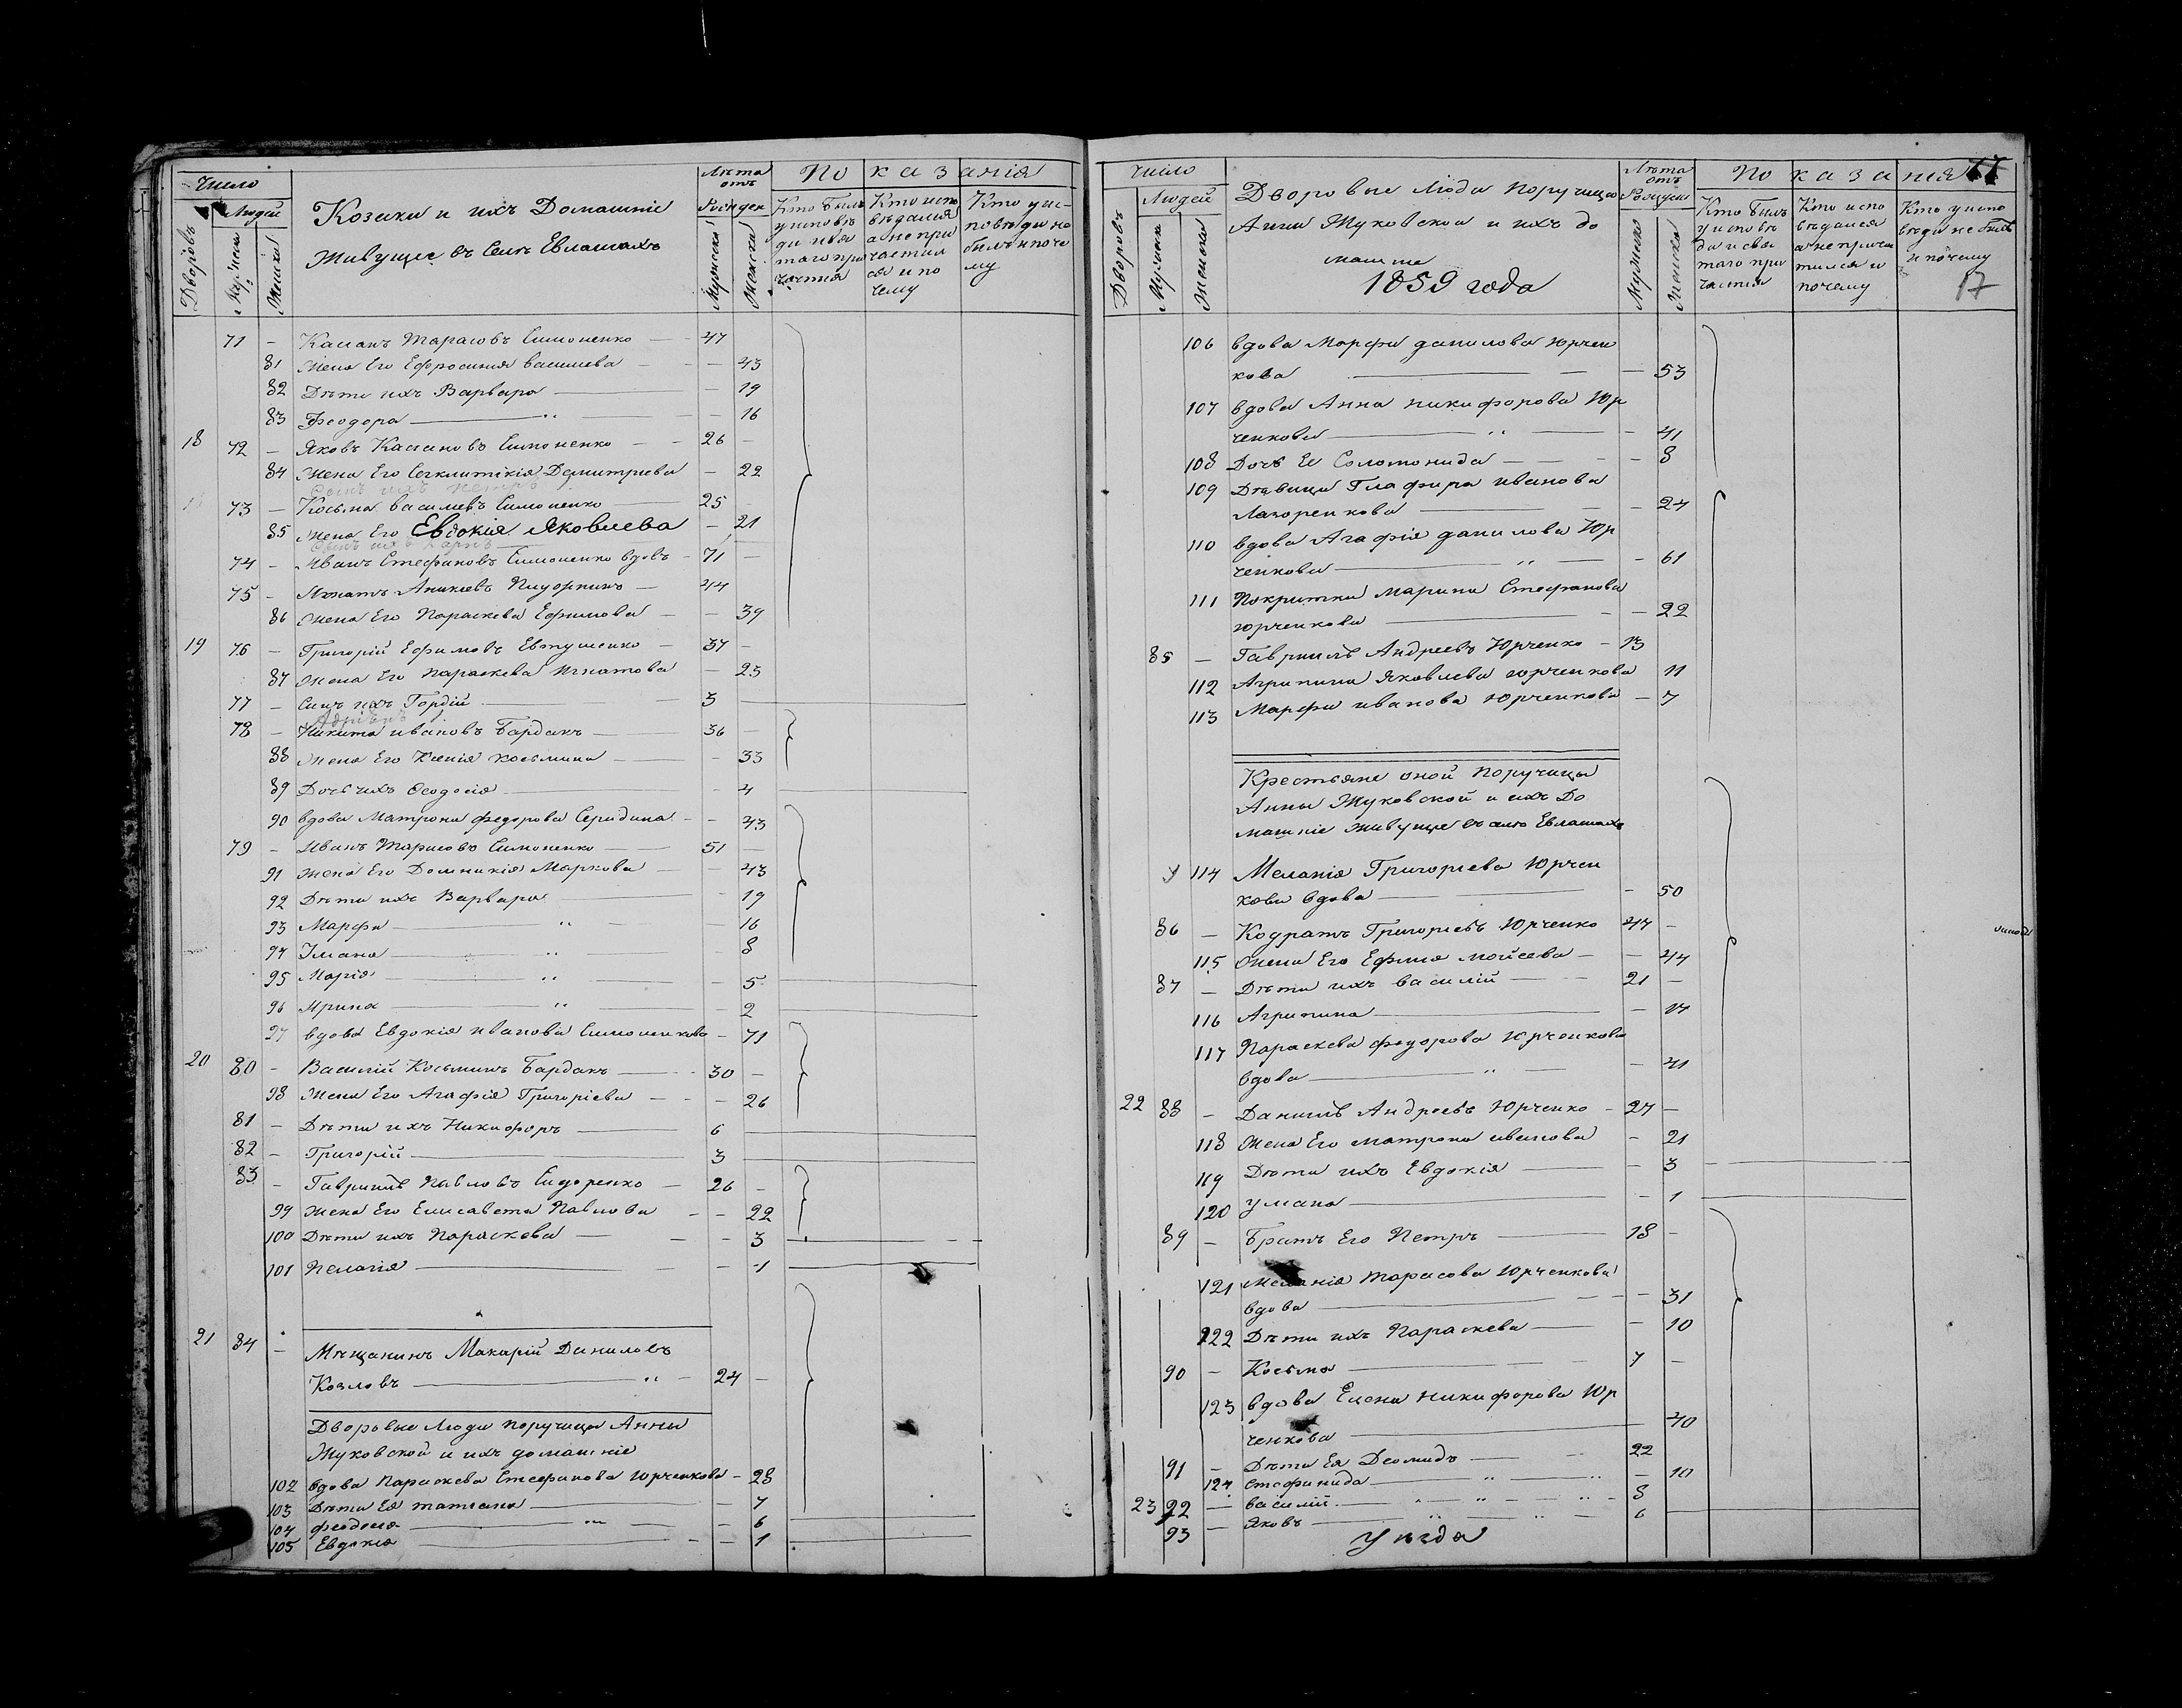 Число
Дворовъ
Людей
Мужеска
Женска
Козаки и ихъ Домашніе
Живущіе въ Селѣ Евлашахъ
Лѣта
отъ
Рожден
Мужеска
Женска
Показанія
Кто былъ
у исповѣ
ди и свя
таго при
частія
Кто испо
вѣдался
а не при
частил
ся и по
чему
Кто у ис-
повѣди не
былъ и поче
му
71 - Касіанъ Тарасовъ Симоненко 47
81 Жена Его Ефросинія Василіева - 43
82 Дѣти ихъ Варвара - 19
83 Феодора „ - 16
18 72 - Яковъ Касіановъ Симоненко 26 -
84 Жена Его Сегклитікія Димитріева - 22
Сынъ ихъ Петръ
73 - Косьма Василіевъ Симоненко 25
85 Жена Его Евдокія Яковлева - 21
Сынъ ихъ
74 - Иванъ Стефановъ Симоненко вдовъ - 71 -
75 - Игнатъ Аникіевъ 44
86 Жена Его Параскева Ефимова - 39
19 76 - Григорій Ефимовъ Евтушенко 37 -
87 Жена Его Параскева Игнатова - 25
77 - Сынъ ихъ Гордій 3
78 - Никита Ивановъ Бардакъ 36 -
88 Жена Его Ксенія Косьмина - 33
89 Дочь ихъ Феодосія - 4
90 вдова Матрона Федорова Середина - 43
79 - Иванъ Тарасовъ Симоненко 51 -
91 Жена Его Домникія Маркова - 43
92 Дѣти ихъ Варвара - 19
93 Марфа „ - 16
94 Уліана „ 8
95 Марія „ - 5
96 Ирина „ - 2
97 вдова Евдокія Иванова Симоненкова - 71
20 80 - Василій Косьминъ Бардакъ 30 -
98 Жена Его Агафія Григоріева - 26
81 - Дѣти ихъ Никифоръ 6
82 - Григорій 3
83 - Гавріилъ Павловъ Сидоренко 26 -
99 Жена Его Елисавета Павлова - 22
100 Дѣти ихъ Параскева - 3
101 Пелагія - 1
21 84 - Мѣщанинъ Макарій Даниловъ
Козловъ „ 24 -
Дворовые Люди поручицы Анны
Жуковской и ихъ домашніе
102 вдова Параскева Стефанова Юрченкова - 28
103 Дѣти Ея Татіана - 7
104 Феодосія „ - 6
105 Евдокія - 1
Число
Дворовъ
Людей
Мужеска
Женска
Дворовые Люди Поручицы
Анны Жуковской и ихъ до
машніе
1859 года
Лѣта
отъ
Рожден
Мужеска
Женска
Показанія 77
Кто былъ
у исповѣ
ди и свя
таго при
частія
Кто испо
вѣдался
а не прича
тился и
почему
Кто у испо
вѣди не былъ
и почему
17
106 вдова Марфа Данилова Юрчен
кова - 53
107 вдова Анна Никифорова Юр
ченкова „ - 41
108 Дочь Ее Соломонида - 8
109 Дѣвица Глафира Иванова
Лазоренкова - 24
110 вдова Агафія Данилова Юр
ченкова „ - 61
111 Покритка Марина Стефанова
Юрченкова - 22
85 - Гавріилъ Андреевъ Юрченко - 13
112 Агрипина Яковлева Юрченкова 11
113 Марфа Иванова Юрченкова - 7
Крестьяне оной Поручицы
Анны Жуковской и ихъ До
машніе живущіе въ селѣ Евлашахъ
114 Меланія Григоріева Юрчен
кова вдова - 50
86 - Кодратъ Григоріевъ Юрченко 47 -
115 Жена Его Ефимія Мойсеева - 44
87 - Дѣти ихъ Василій 21 -
116 Агрипина - 17
117 Параскева Федорова Юрченкова
вдова „ - 41
22 88 - Даніилъ Андреевъ Юрченко - 27 -
118 Жена Его Матрона Иванова - 21
119 Дѣти ихъ Евдокія - 3
120 Уліана - 1
89 - Братъ Его Петръ 18 -
121 Меланія Тарасова Юрченкова
вдова - 31
122 Дѣти ихъ Параскева - 10
90 - Косьма 7 -
123 вдова Елена Никифорова Юр
ченкова 40
91 - Дѣти Ея Деомидъ 22
124 Стефанида „ „ - 10
23 92 - Василій „ „ „ - 8
93 - Яковъ „ „ - 6
Уѣзда